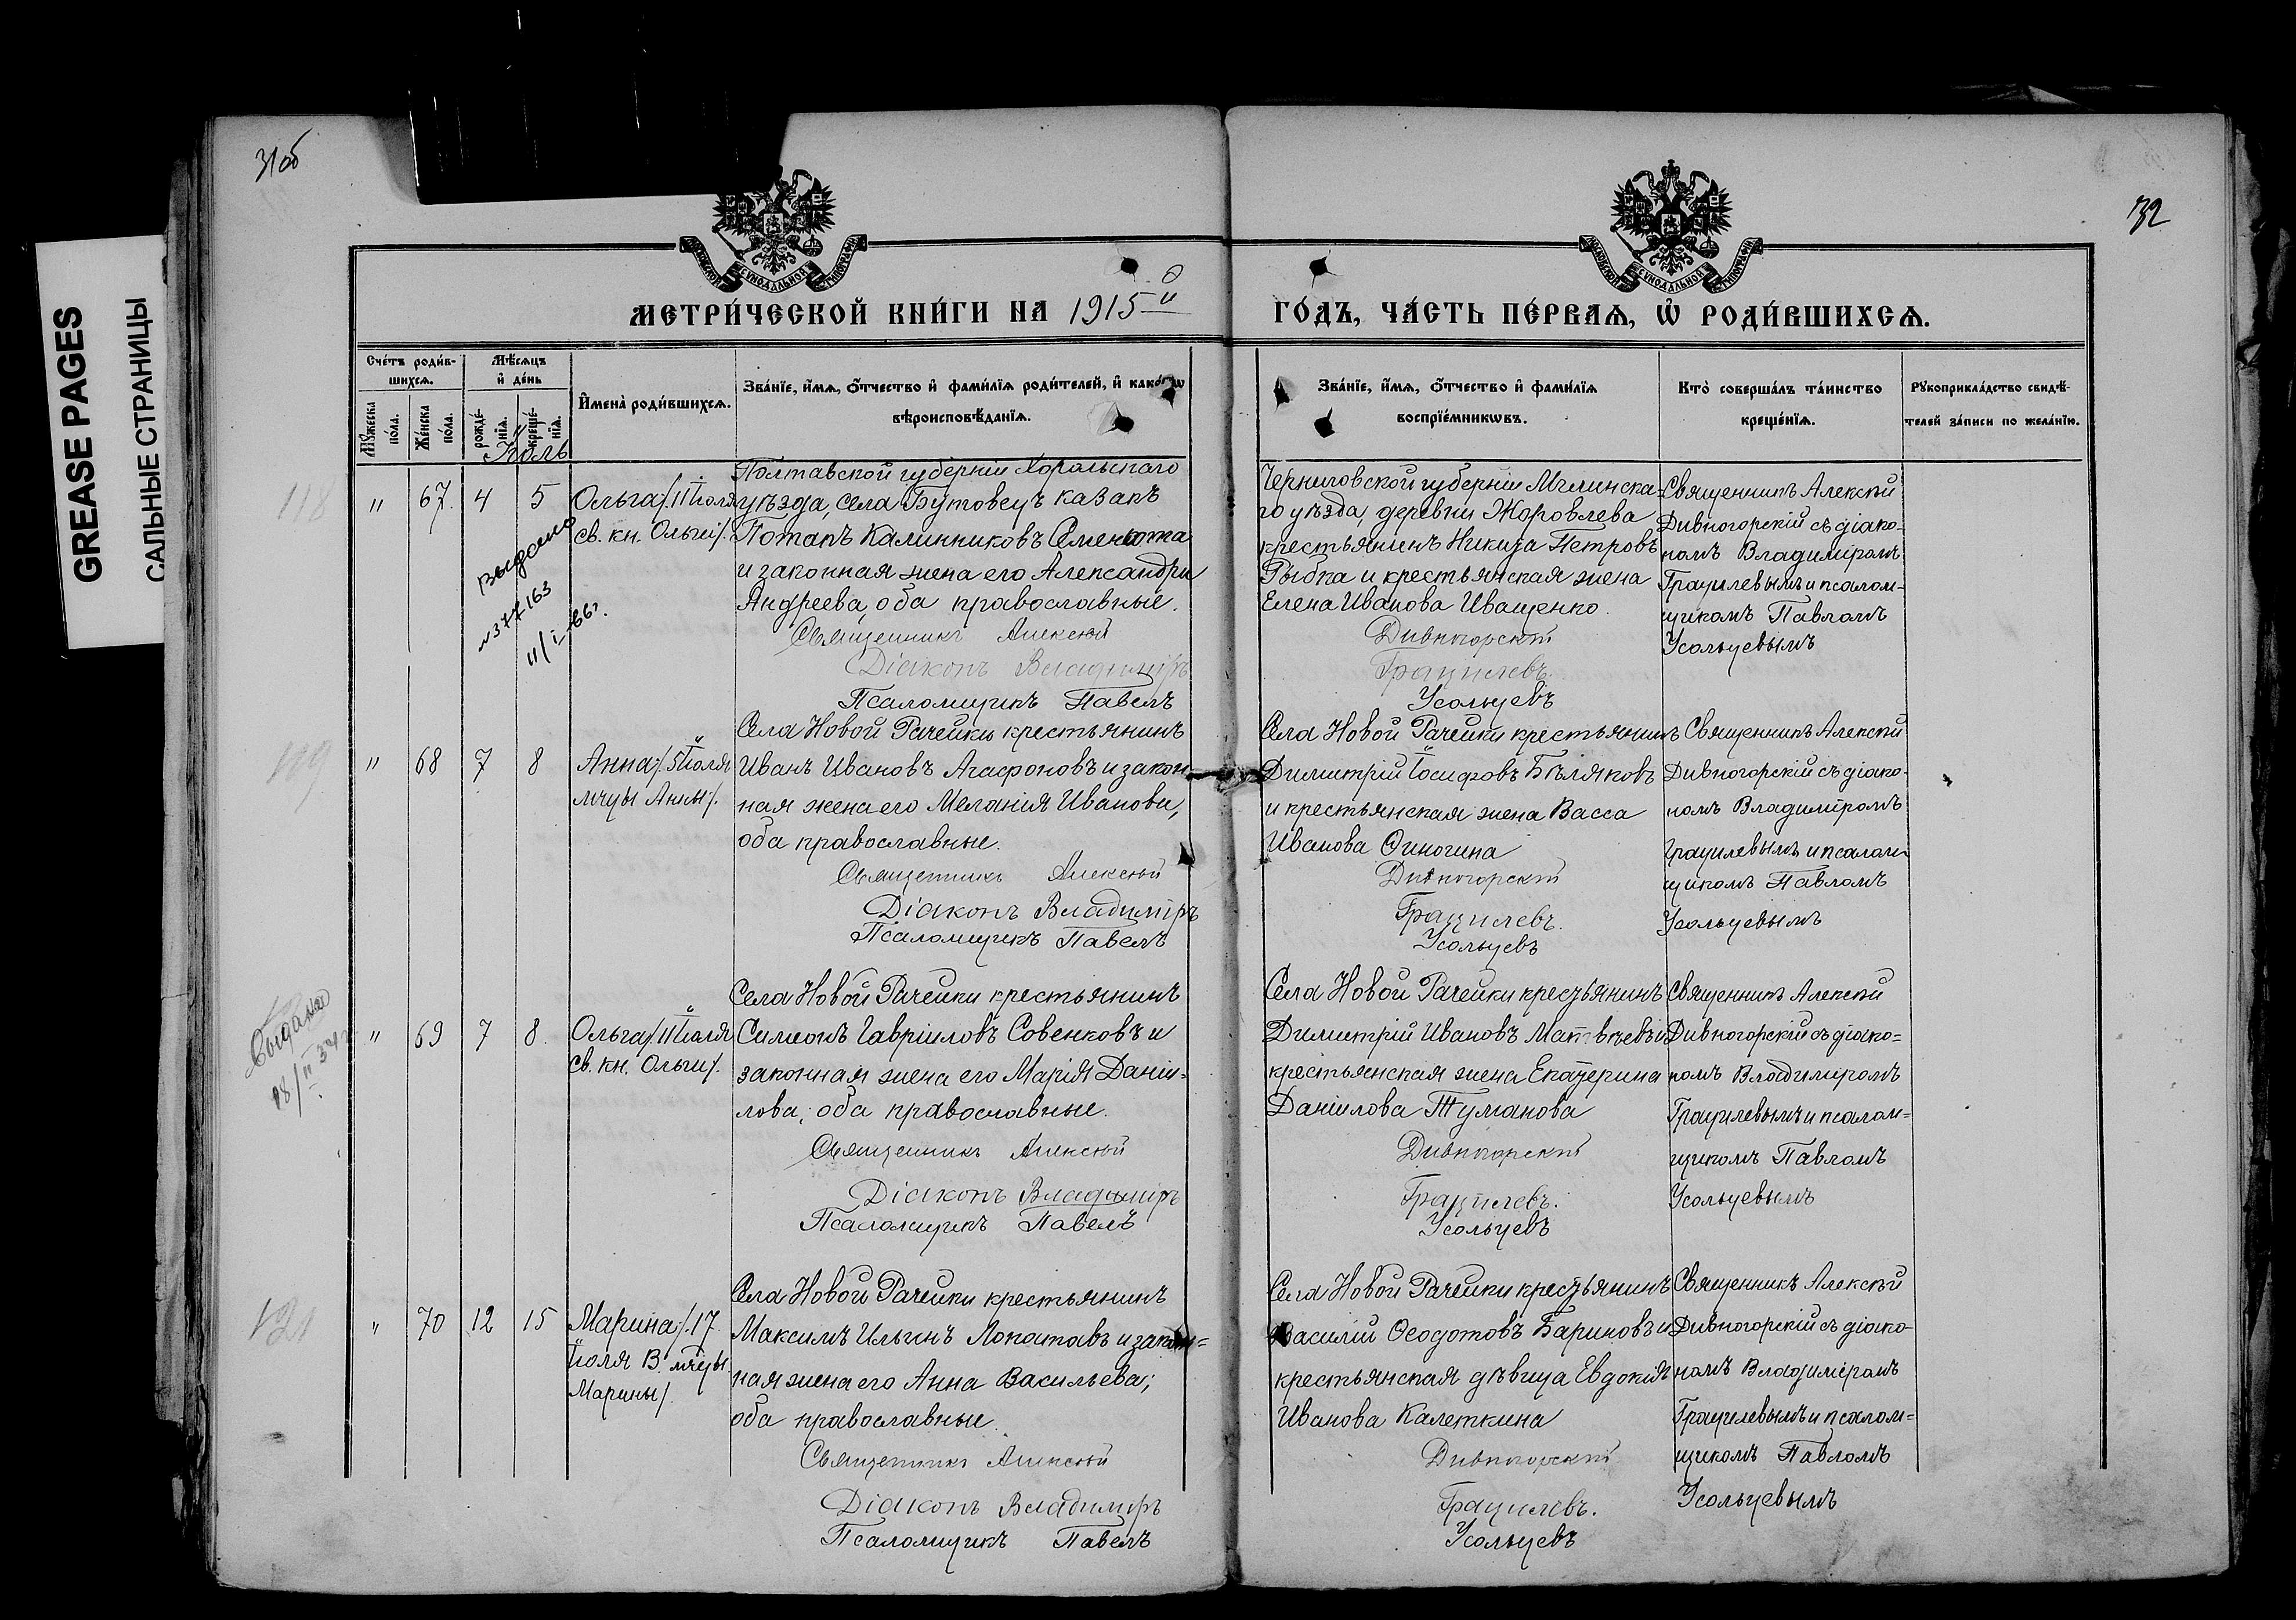 GREASE PAGES
САЛЬНЫЕ СТРАНИЦЫ
31об
32
МЕТРИ́ЧЕСКОЙ КНИ́ГИ НА 1915 й
ГО́ДЪ, ЧА́СТЬ ПЕ́РВАѦ, Ѽ РОДИ́ВШИХСѦ.
Сче́тъ роди́в-
шихсѧ.
Мѣ́сѧцъ
и҆ де́нь
И҆мена̀ роди́вшихсѧ.
Зва́нїе, и҆́мѧ, ѻ҆́тчество и҆ фами́лїѧ роди́телей, и҆ како́гѡ
вѣроисповѣ́данїѧ.
Мꙋ́жеска
по́ла.
Же́нска
по́ла.
рожде́-
нїѧ.
креще́-
нїѧ.
Зва́нїе, и҆́мѧ, ѻ҆́тчество и҆ фами́лїѧ
воспрїе́мникѡвъ.
Кто̀ соверша́лъ та́инство
креще́нїѧ.
Рꙋкоприкла́дство свидѣ́-
телей за́писи по жела́нїю.
Іюль
118
" 67. 4 5
Ольга/. 11 Іюля
св. кн. Ольги/.
Выдано
№377163
11/I-66г.
Полтавской губерніи Хорольскаго
уѣзда, села Бутовецъ казакъ
Потапъ Калинниковъ Семенюта
и законная жена его Александра
Андреева, оба православные.
Священникъ Алексѣй
Діаконъ Владиміръ
Псаломщикъ Павелъ
Черниговской губерніи Мглинска-
го уѣзда, деревни Жоровлева
крестьянинъ Никита Петровъ
Рыбка и крестьянская жена
Елена Иванова Иващенко.
Дивногорскій
Грацилевъ.
Усольцевъ
Священникъ Алексѣй
Дивногорскій съ діако-
номъ Владиміромъ
Грацилевымъ и псалом-
щикомъ Павломъ
Усольцевымъ
119
" 68 7 8
Анна/. 5 Іюля
мчцы Анны/.
Села Новой Рачейки крестьянинъ
Иванъ Ивановъ Агафоновъ и закон-
ная жена его Меланія Иванова,
оба православные.
Священникъ Алексѣй
Діаконъ Владиміръ
Псаломщикъ Павелъ
Села Новой Рачейки крестьянинъ
Димитрій Іосифовъ Бѣляковъ
и крестьянская жена Васса
Иванова Ѳиногина
Дивногорскій
Грацилевъ.
Усольцевъ
Священникъ Алексѣй
Дивногорскій съ діако-
номъ Владиміромъ
Грацилевымъ и псалом-
щикомъ Павломъ
Усольцевымъ
Выдана
18/II 34г
" 69 7 8.
Ольга/. 11 Іюля
св. кн. Ольги/.
Села Новой Рачейки крестьянинъ
Симеонъ Гавріиловъ Совенковъ и
законная жена его Марія Даніи-
лова; оба православные.
Священникъ Алексѣй
Діаконъ Владиміръ
Псаломщикъ Павелъ
Села Новой Рачейки крестьянинъ
Димитрій Ивановъ Матвѣевъ и
крестьянская жена Екатерина
Даніилова Туманова
Дивногорскій
Грацилевъ.
Усольцевъ
Священникъ Алексѣй
Дивногорскій съ діако=
номъ Владиміромъ
Грацилевымъ и псалом=
щикомъ Павломъ
Усольцевымъ
121
" 70 12 15
Марина/. 17
Іюля В. мчцы
Марины/.
Села Новой Рачейки крестьянинъ
Максимъ Ильинъ Лопатовъ и закон=
ная жена его Анна Васильева;
оба православные.
Священникъ Алексѣй
Діаконъ Владиміръ
Псаломщикъ Павелъ
Села Новой Рачейки крестьянинъ
Василій Ѳеодотовъ Бариновъ и
крестьянская дѣвица Евдокія
Иванова Калеткина
Дивногорскій
Грацилевъ.
Усольцевъ
Священникъ Алексѣй
Дивногорскій съ діако-
номъ Владиміромъ
Грацилевымъ и псалом=
щикомъ Павломъ
Усольцевымъ